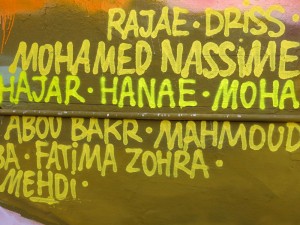 RAJAE · DRISS
MOHAMED NASSIME
HAJAR · HANAE · MOHA
ABOU BAKR · MAHMOUD
BA · FATIMA ZOHRA ·
MEHDI ·